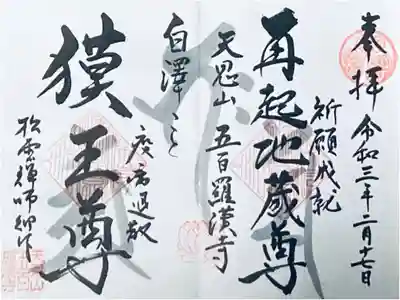 奉拝 令和三年二月七日
祈願成就
再起地蔵尊
天恩山 五百羅漢寺
白澤こと
疫病退散
獏王尊
松雲禅師御作